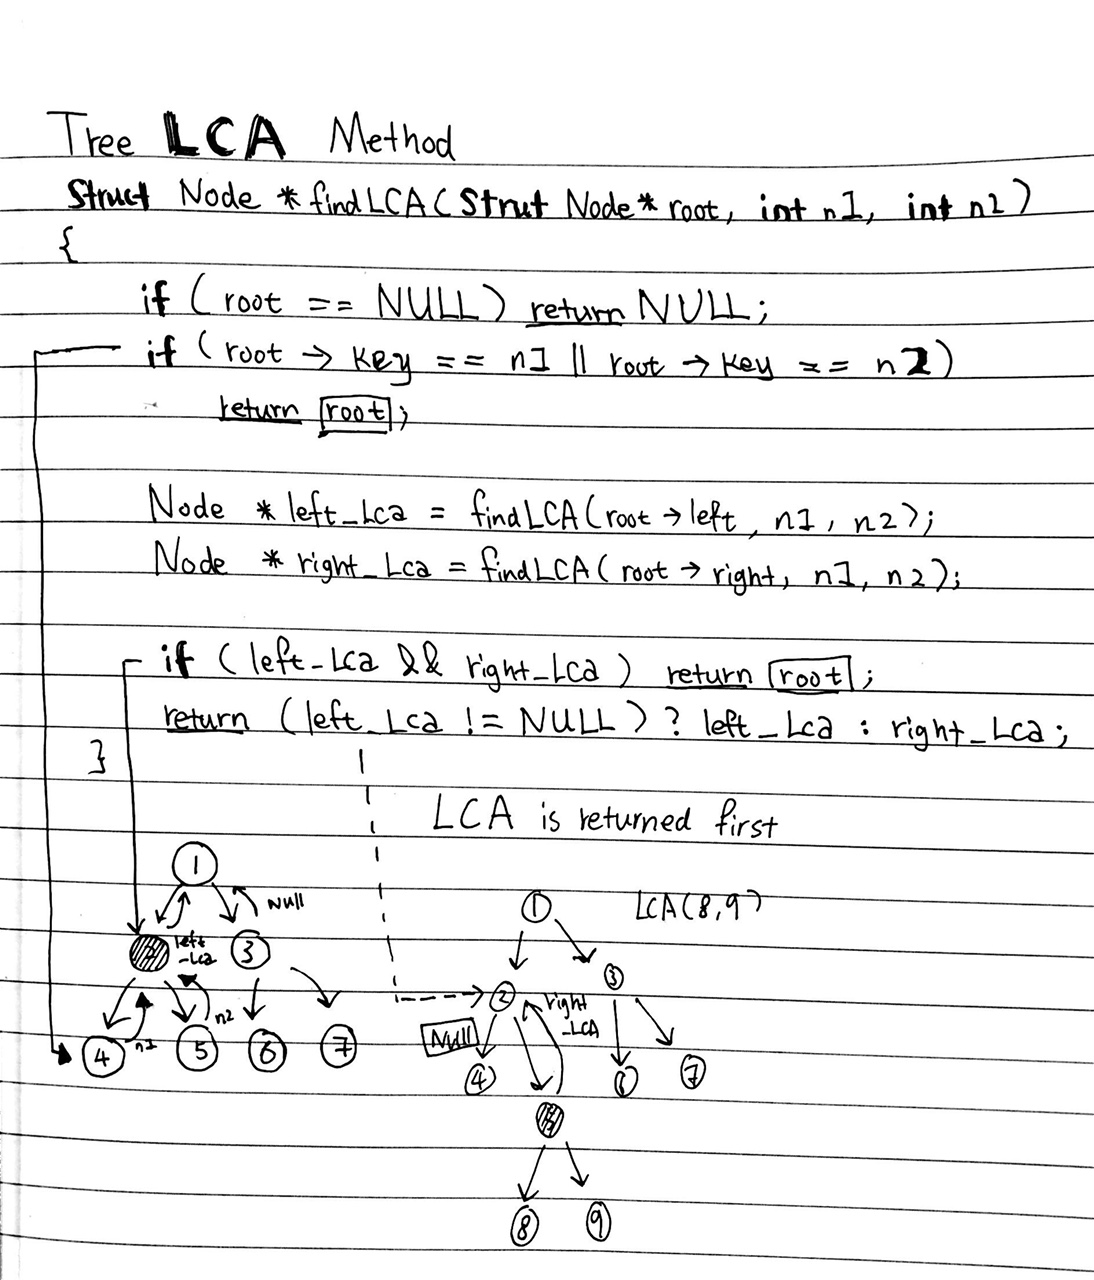 Tree LCA Method
Struct Node * findLCA(Strut Node* root, int n1, int n2)
{
if (root == NULL) return NULL;
if (root → key == n1 || root → key == n2)
return root;
Node * left_Lca = findLCA(root → left, n1, n2);
Node * right_Lca = findLCA(root → right, n1, n2);
if (left_Lca && right_Lca) return root;
return (left_Lca != NULL) ? left_Lca : right_Lca;
}
LCA is returned first
1
Null
left
_Lca
3
n1
n2
4
5
6
7
1
LCA(8,9)
2
3
right
_LCA
Null
4
6
7
8
9